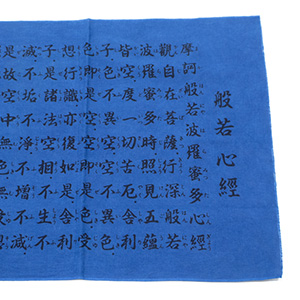 般若心經
摩訶般若波羅蜜多心經
觀自在菩薩行深般若
波羅蜜多時照見五蘊
皆空度一切苦厄舍利
子色不異空空不異色
色即是空空即是色受
想行識亦復如是舍利
子是諸法空相不生不
滅不垢不淨不增不減
是故空中無色無受想